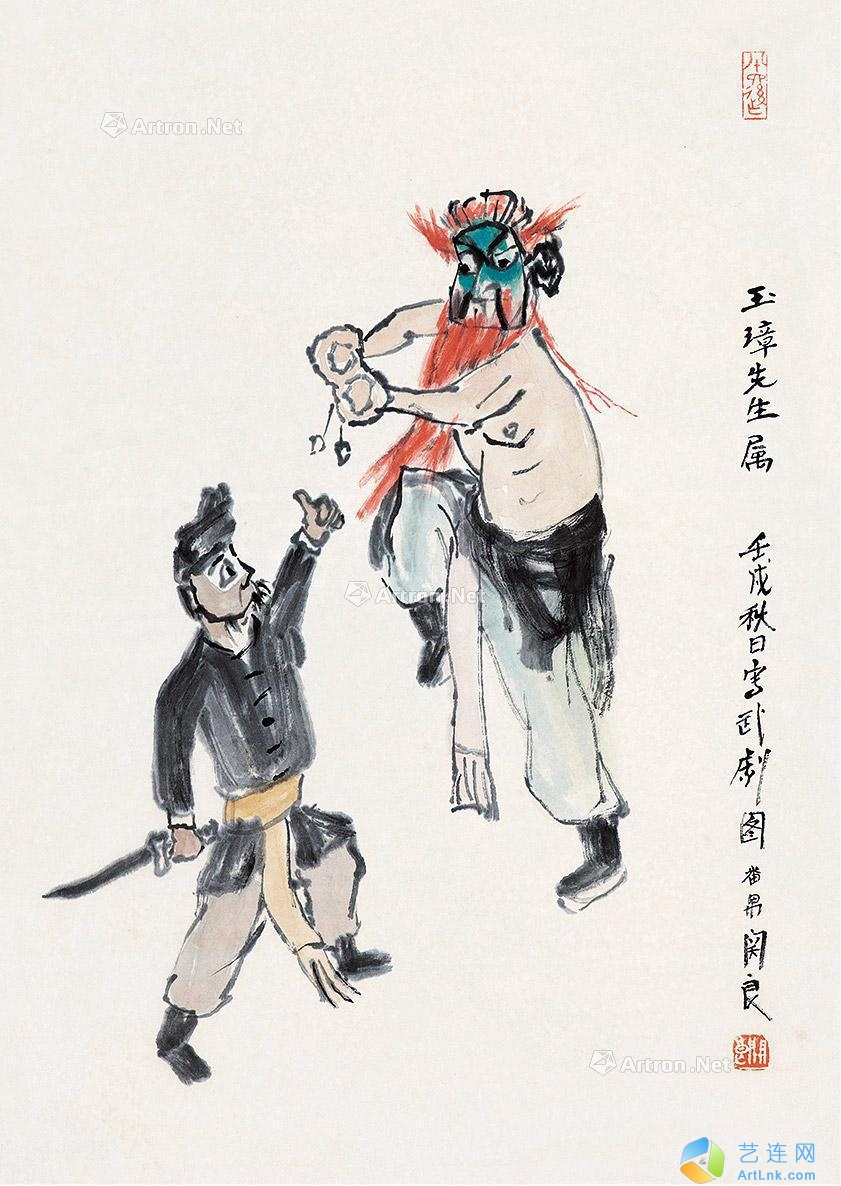 Artron.Net
玉璋先生属 壬戌秋日写武剧图 番禺关良
Artron.Net
Artron.Net
艺连网
ArtLnk.com